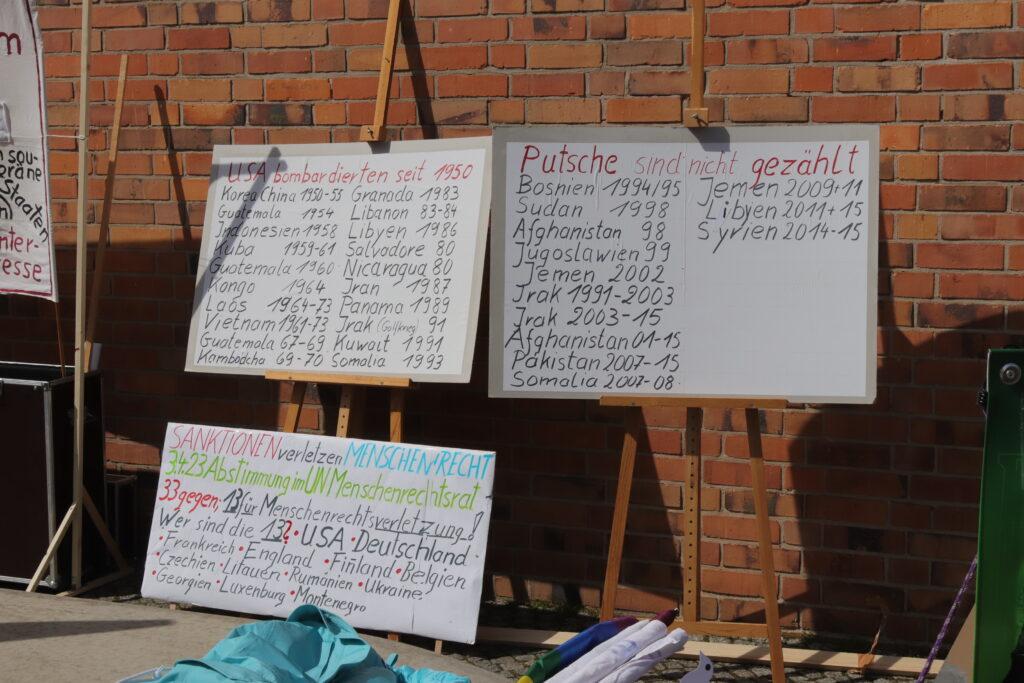 m
n sou-
räne
Staaten
n
nter-
esse
USA bombardierten seit 1950
Korea China 1950-53 Granada 1983
Guatemala 1954 Libanon 83-84
Indonesien 1958 Libyen 1986
Kuba 1959-61 Salvadore 80
Guatemala 1960 Nicaragua 80
Kongo 1964 Iran 1987
Laos 1964-73 Panama 1989
Vietnam 1961-73 Irak (Golfkrieg) 91
Guatemala 67-69 Kuwait 1991
Kambodcha 69-70 Somalia 1993
Putsche sind nicht gezählt
Bosnien 1994/95 Jemen 2009+11
Sudan 1998 Libyen 2011+15
Afghanistan 98 Syrien 2014-15
Jugoslawien 99
Jemen 2002
Irak 1991-2003
Irak 2003-15
Afghanistan 01-15
Pakistan 2007-15
Somalia 2007-08
SANKTIONEN verletzen MENSCHEN•RECHT
3.4.23 Abstimmung im UN Menschenrechtsrat
33 gegen; 13 für Menschenrechtsverletzung!
Wer sind die 13? • USA • Deutschland
• Frankreich • England • Finland • Belgien
• Czechien • Litauen • Rumänien • Ukraine
• Georgien • Luxenburg • Montenegro